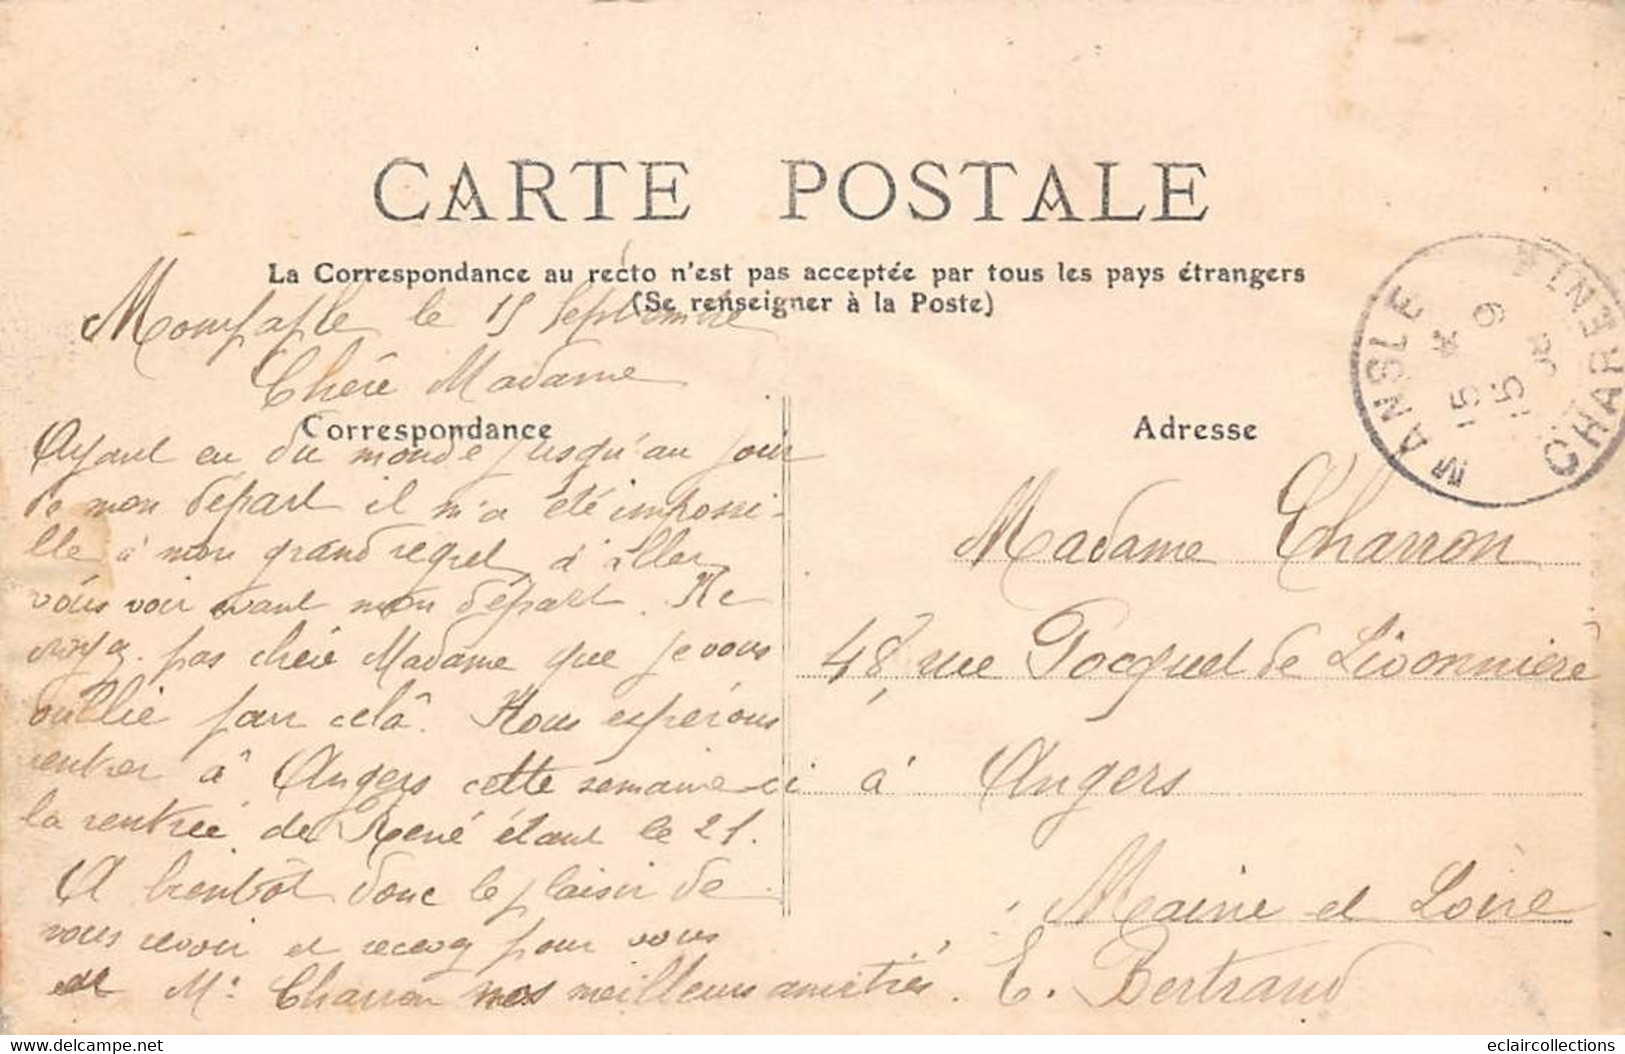 CARTE POSTALE
La Correspondance au recto n'est pas acceptée par tous les pays étrangers
(Se renseigner à la Poste)
le 15 Septembre
Chère Madame
Correspondance
Ayant eu du monde jusqu'au jour
de mon départ il m'a été impossi-
ble à mon grand regret d'aller
vous voir avant mon départ. Ne
croyez pas chère Madame que je vous
oublie pour celà. Nous espérons
rentrer à Angers cette semaine ci
la rentrée de René étant le 21.
A bientôt donc le plaisir de
vous revoir et recevez pour vous
et Mr Charron nos meilleurs amitiés. E. Bertrand
Adresse
Madame Charron
48, rue Pocquet de Livonnière
à Angers
Maine et Loire
MANSLE
CHARENTE
15 *
15 9
eclaircollections
delcampe.net